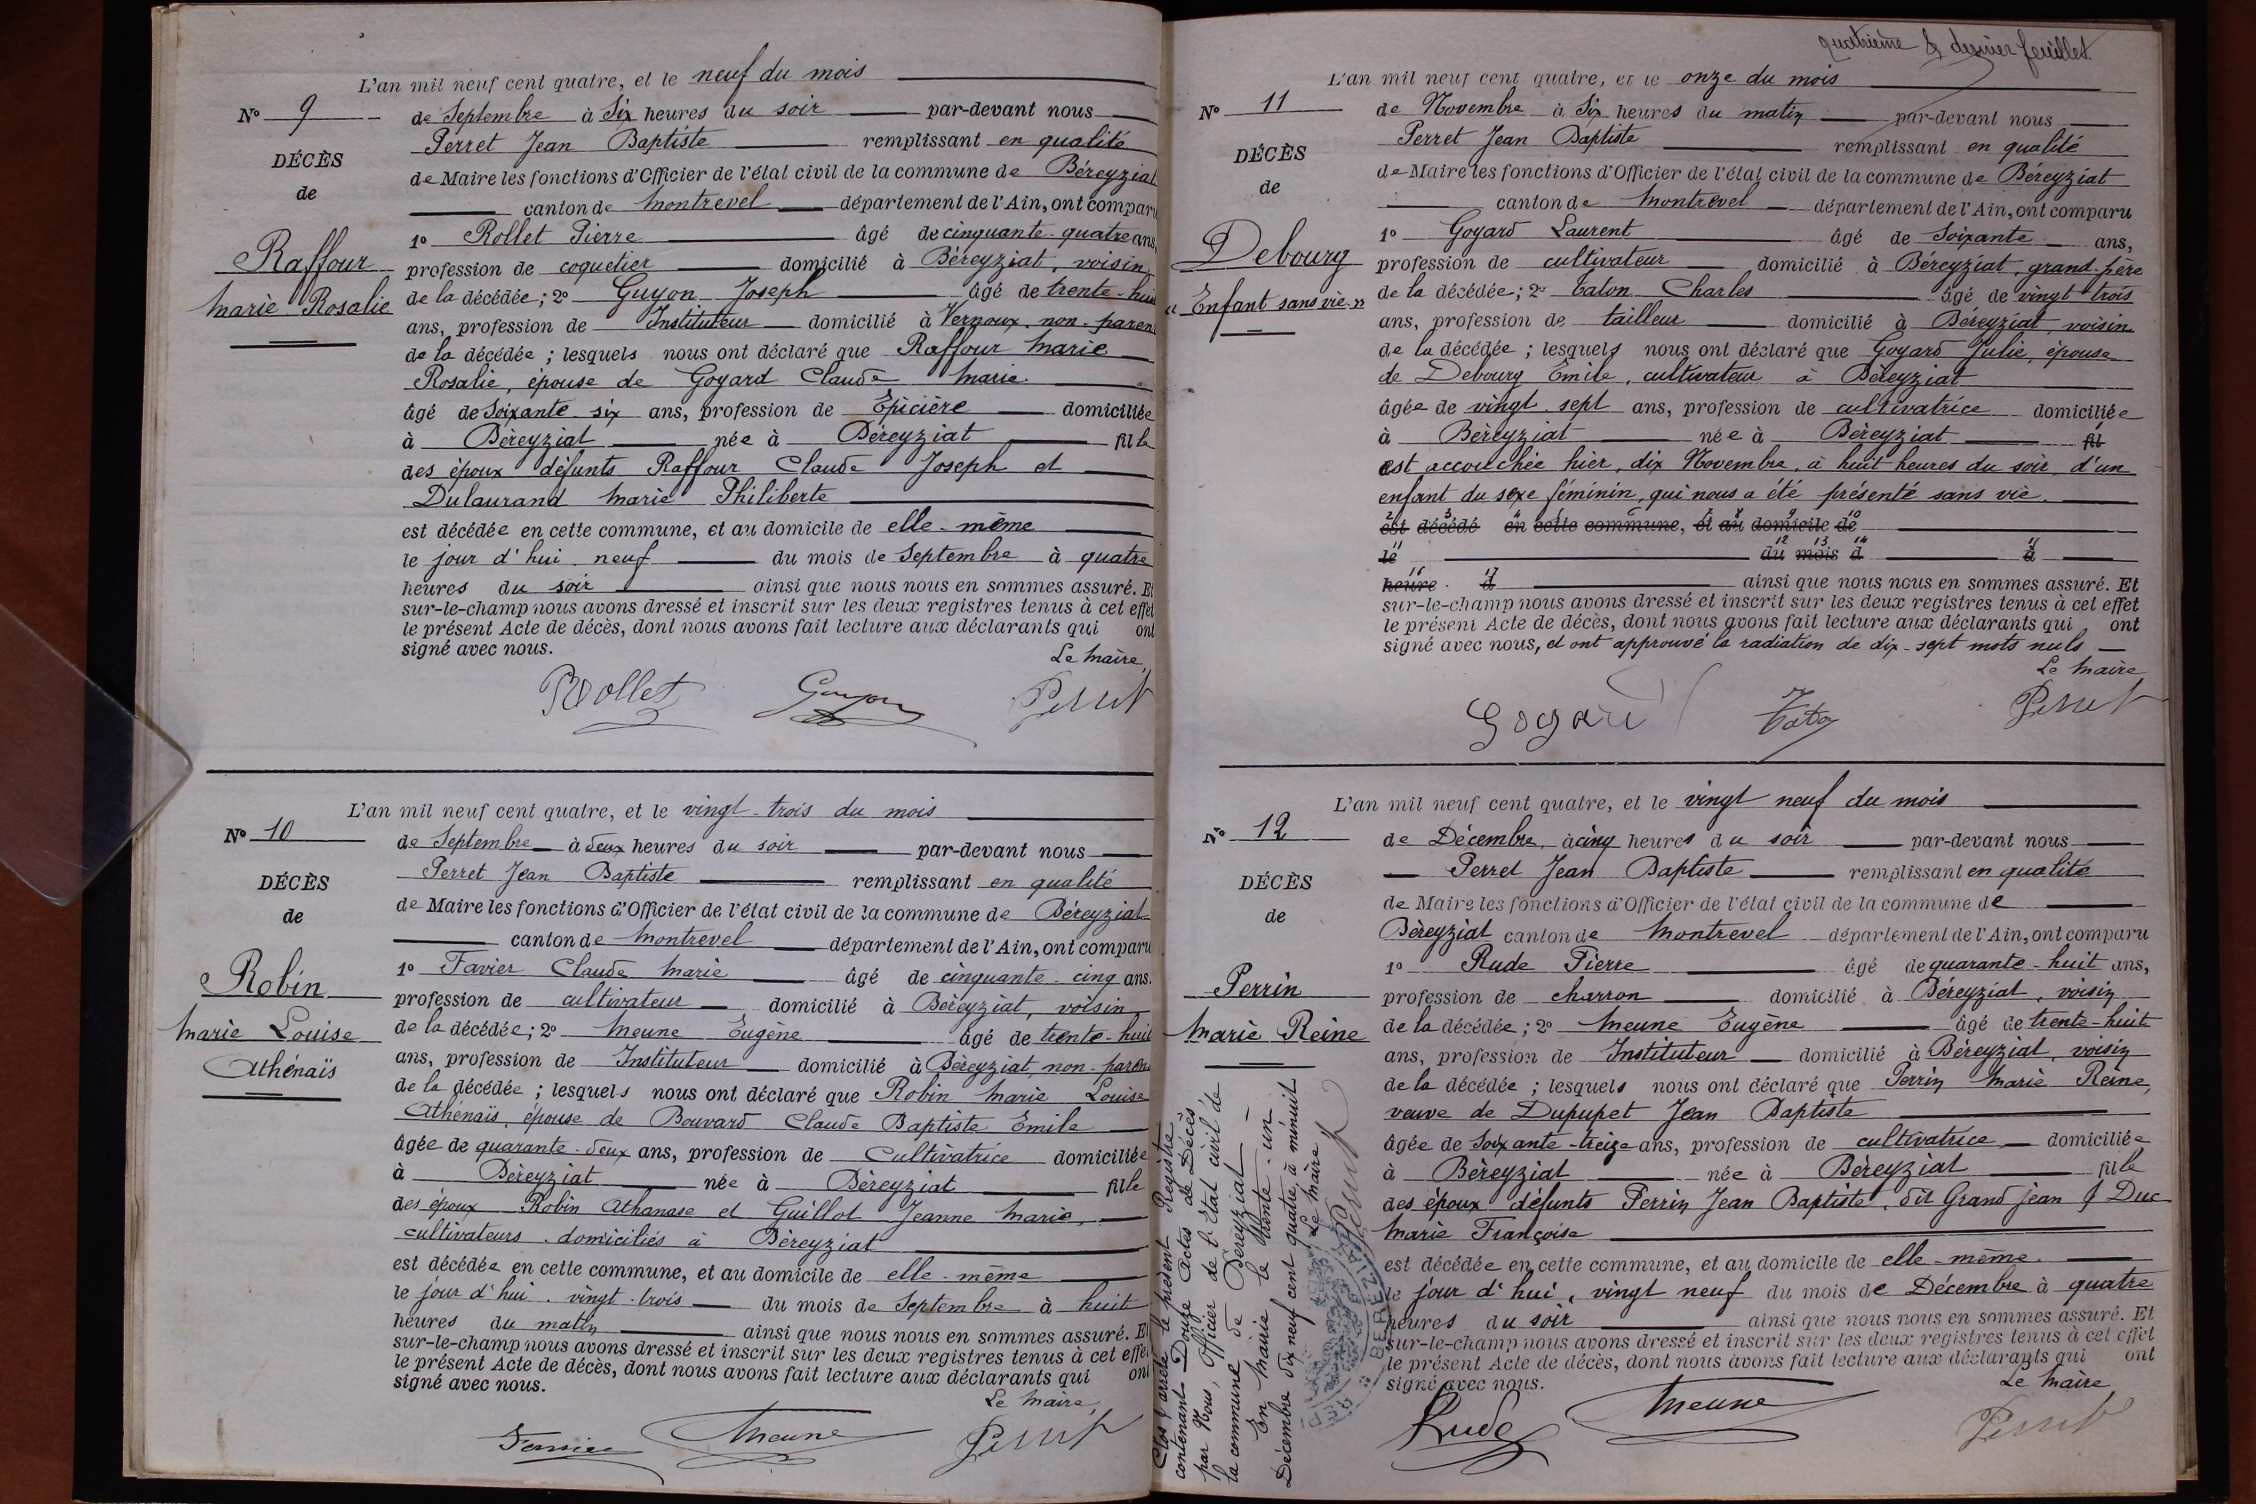 L'an mil neuf cent quatre, et le neuf du mois
N° 9
de Septembre à Six heures du soir par-devant nous
Perret Jean Baptiste remplissant en qualité
DÉCÈS
de Maire les fonctions d'Officier de l'état civil de la commune de Béreyziat
de
canton de Montrevel département de l'Ain, ont comparu
1° Rollet Pierre âgé de cinquante-quatre ans,
Raffour
profession de coquetier domicilié à Béreyziat, voisin
Marie Rosalie
de la décédée; 2° Guyon Joseph âgé de trente-huit
ans, profession de Instituteur domicilié à Vernoux, non-parent
de la décédée; lesquels nous ont déclaré que Raffour Marie
Rosalie, épouse de Goyard Claude Marie
âgé de Soixante-six ans, profession de Epicière domiciliée
à Béreyziat née à Béreyziat fille
des époux défunts Raffour Claude Joseph et
Dulaurand Marie Philiberte
est décédée en cette commune, et au domicile de elle-même
le jour d'hui neuf du mois de Septembre à quatre
heures du soir ainsi que nous nous en sommes assuré. Et
sur-le-champ nous avons dressé et inscrit sur les deux registres tenus à cet effet
le présent Acte de décès, dont nous avons fait lecture aux déclarants qui ont
signé avec nous.
Le Maire,
Rollet Guyon Perret
L'an mil neuf cent quatre, et le vingt-trois du mois
N° 10
de Septembre à deux heures du soir par-devant nous
Perret Jean Baptiste remplissant en qualité
DÉCÈS
de Maire les fonctions d'Officier de l'état civil de la commune de Béreyziat
de
canton de Montrevel département de l'Ain, ont comparu
1° Favier Claude Marie âgé de cinquante-cinq ans.
Robin
profession de cultivateur domicilié à Béreyziat, voisin
Marie Louise
de la décédée; 2° Meune Eugène âgé de trente-huit
Athénaïs
ans, profession de Instituteur domicilié à Béreyziat, non-parent
de la décédée; lesquels nous ont déclaré que Robin Marie Louise
Athénaïs, épouse de Bouvard Claude Baptiste Emile
âgée de quarante-deux ans, profession de Cultivatrice domiciliée
à Béreyziat née à Béreyziat fille
des époux Robin Athanase et Guillot Jeanne Marie,
cultivateurs domiciliés à Béreyziat
est décédée en cette commune, et au domicile de elle-même
le jour d'hui vingt-trois du mois de Septembre à huit
heures du matin ainsi que nous nous en sommes assuré. Et
sur-le-champ nous avons dressé et inscrit sur les deux registres tenus à cet effet
le présent Acte de décès, dont nous avons fait lecture aux déclarants qui ont
signé avec nous.
Le Maire,
Favier Meune Perret
quatrième & dernier feuillet.
L'an mil neuf cent quatre, et le onze du mois
N° 11
de Novembre à Six heures du matin par-devant nous
Perret Jean Baptiste remplissant en qualité
DÉCÈS
de Maire les fonctions d'Officier de l'état civil de la commune de Béreyziat
de
canton de Montrevel département de l'Ain, ont comparu
1° Goyard Laurent âgé de Soixante ans,
Debourg
profession de cultivateur domicilié à Béreyziat, grand-père
« Enfant sans vie »
de la décédée; 2° Talon Charles âgé de vingt-trois
ans, profession de tailleur domicilié à Béreyziat, voisin
de la décédée; lesquels nous ont déclaré que Goyard Julie, épouse
de Debourg Emile, cultivateur à Béreyziat
âgée de vingt-sept ans, profession de cultivatrice domiciliée
à Béreyziat née à Béreyziat fil
est accouchée hier, dix Novembre, à huit heures du soir, d'un
enfant du sexe féminin, qui nous a été présenté sans vie.
est décédé en cette commune, et au domicile de
le du mois d à
heure d ainsi que nous nous en sommes assuré. Et
sur-le-champ nous avons dressé et inscrit sur les deux registres tenus à cet effet
le présent Acte de décès, dont nous avons fait lecture aux déclarants qui ont
signé avec nous, et ont approuvé la radiation de dix-sept mots nuls
Le Maire
Goyard Perret
L'an mil neuf cent quatre, et le vingt neuf du mois
N° 12
de Décembre, à cinq heures du soir par-devant nous
Perret Jean Baptiste remplissant en qualité
DÉCÈS
de Maire les fonctions d'Officier de l'état civil de la commune de
de
Béreyziat canton de Montrevel département de l'Ain, ont comparu
1° Rude Pierre âgé de quarante-huit ans,
Perrin
profession de charron domicilié à Béreyziat, voisin
Marie Reine
de la décédée; 2° Meune Eugène âgé de trente-huit
ans, profession de Instituteur domicilié à Béreyziat, voisin
de la décédée; lesquels nous ont déclaré que Perrin Marie Reine,
veuve de Dupupet Jean Baptiste
âgée de Soixante-treize ans, profession de cultivatrice domiciliée
à Béreyziat née à Béreyziat fille
des époux défunts Perrin Jean Baptiste, dit Grand jean & Duc
Marie Françoise
est décédée en cette commune, et au domicile de elle-même.
le jour d'hui, vingt neuf du mois de Décembre à quatre
heures du soir ainsi que nous nous en sommes assuré. Et
sur-le-champ nous avons dressé et inscrit sur les deux registres tenus à cet effet
le présent Acte de décès, dont nous avons fait lecture aux déclarants qui ont
signé avec nous.
Le Maire
Rude Meune Perret
Clos & arrêté le présent Registre
contenant Douze Actes de Décès
par Nous, Officier de l'État civil de
la commune de Béreyziat
En Mairie le trente-un
Décembre dix neuf cent quatre, à minuit
Le Maire
Perret
BEREYZIAT